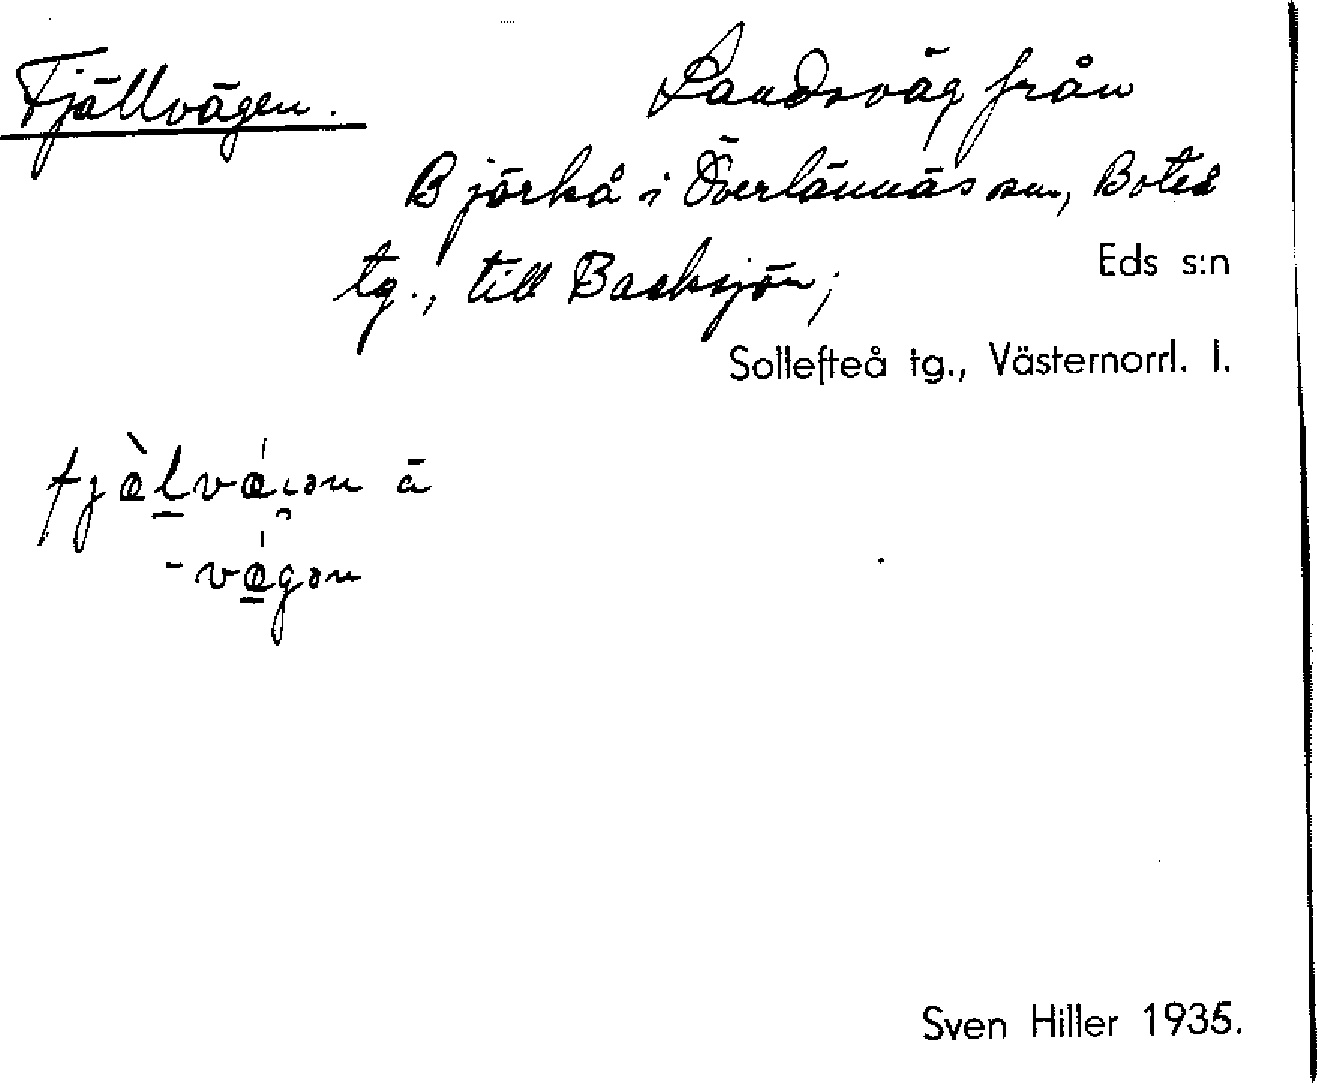 Fjällvägen. Landsväg från
Björkå i Överlännäs sn, Boteå
tg., till Backsjön;
Eds s:n
Sollefteå tg., Västernorrl. l.
fjæ̀lvǽ ı̯ən ä
-vǽgən
Sven Hiller 1935.